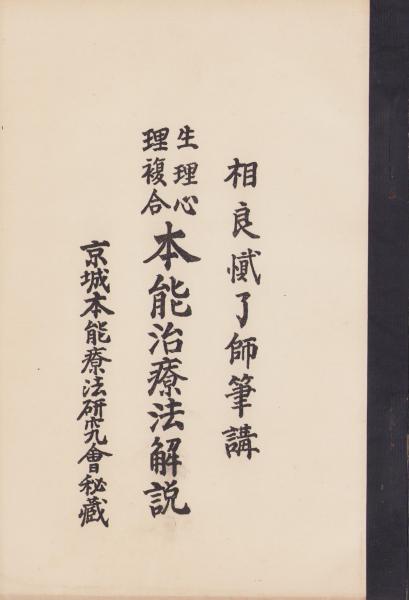 相良了師筆講
生理心理複合本能治療法解説
京城本能療法研究會秘藏